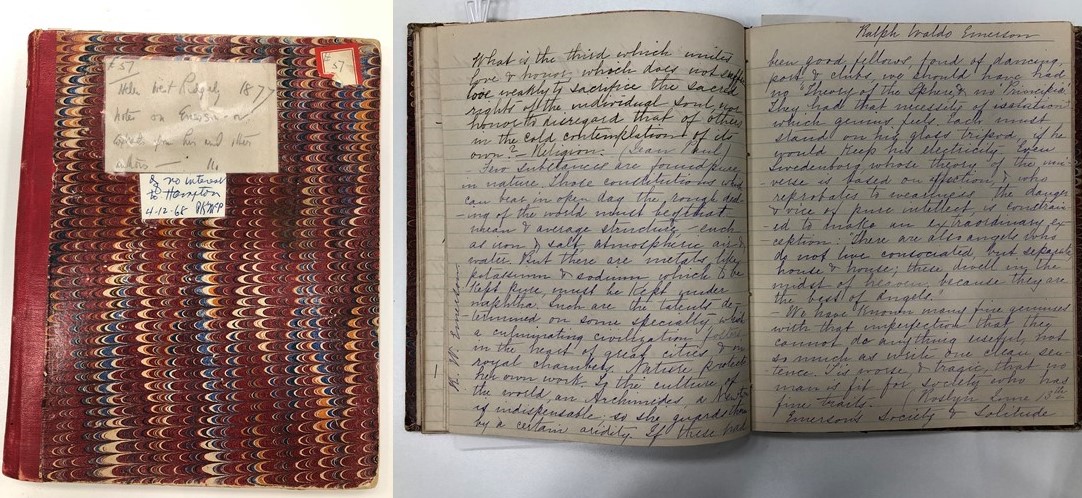 E 57
57
Helen West Ridgely 1877
Notes on Emerson or
copied from him and other
authors —
Of no interest
to Hampton
4-12-68
What is the third which unites
love & honor; which does not suffer
love weakly to sacrifice the sacred
rights of the individual soul, nor
honor to disregard that of others
in the cold contemplation of its
own? — Religion. (Jean Paul)
Two substances are found pure
in nature. Those constitutions which
can bear in open day the rough deal-
-ing of the world must be of that
mean & average structure - such
as iron & salt, atmospheric air &
water. But there are metals, like
potassium & sodium which to be
kept pure, must be kept under
naphtha. Such are the talents de-
-termined on some specialty which
a culminating civilization fosters
in the heart of great cities, & in
royal chambers. Nature protects
her own work. To the culture of
the world, an Archimedes, a Newton
is indispensable; so she guards them
by a certain aridity. If these had
R. W. Emerson
Ralph Waldo Emerson
been good fellows, fond of dancing,
port & clubs, we should have had
no "Theory of the Sphere" & no "Principia".
They had that necessity of isolation
which genius feels. Each must
stand on his glass tripod, if he
would keep his electricity. Even
Swedenborg whose theory of the uni-
-verse is based on affection, & who
reprobates to weariness the danger
& vice of pure intellect is constrain-
-ed to make an extraordinary ex-
-ception: "There are also angels who
do not live consociated, but separate,
house & house; these dwell in the
midst of heaven, because they are
the best of angels."
— We have known many fine geniuses
with that imperfection that they
cannot do anything useful, not
so much as write one clean sen-
tence. 'Tis worse, & tragic, that no
man is fit for society who has
fine traits. (Roslyn June 13th
Emerson's Society & Solitude